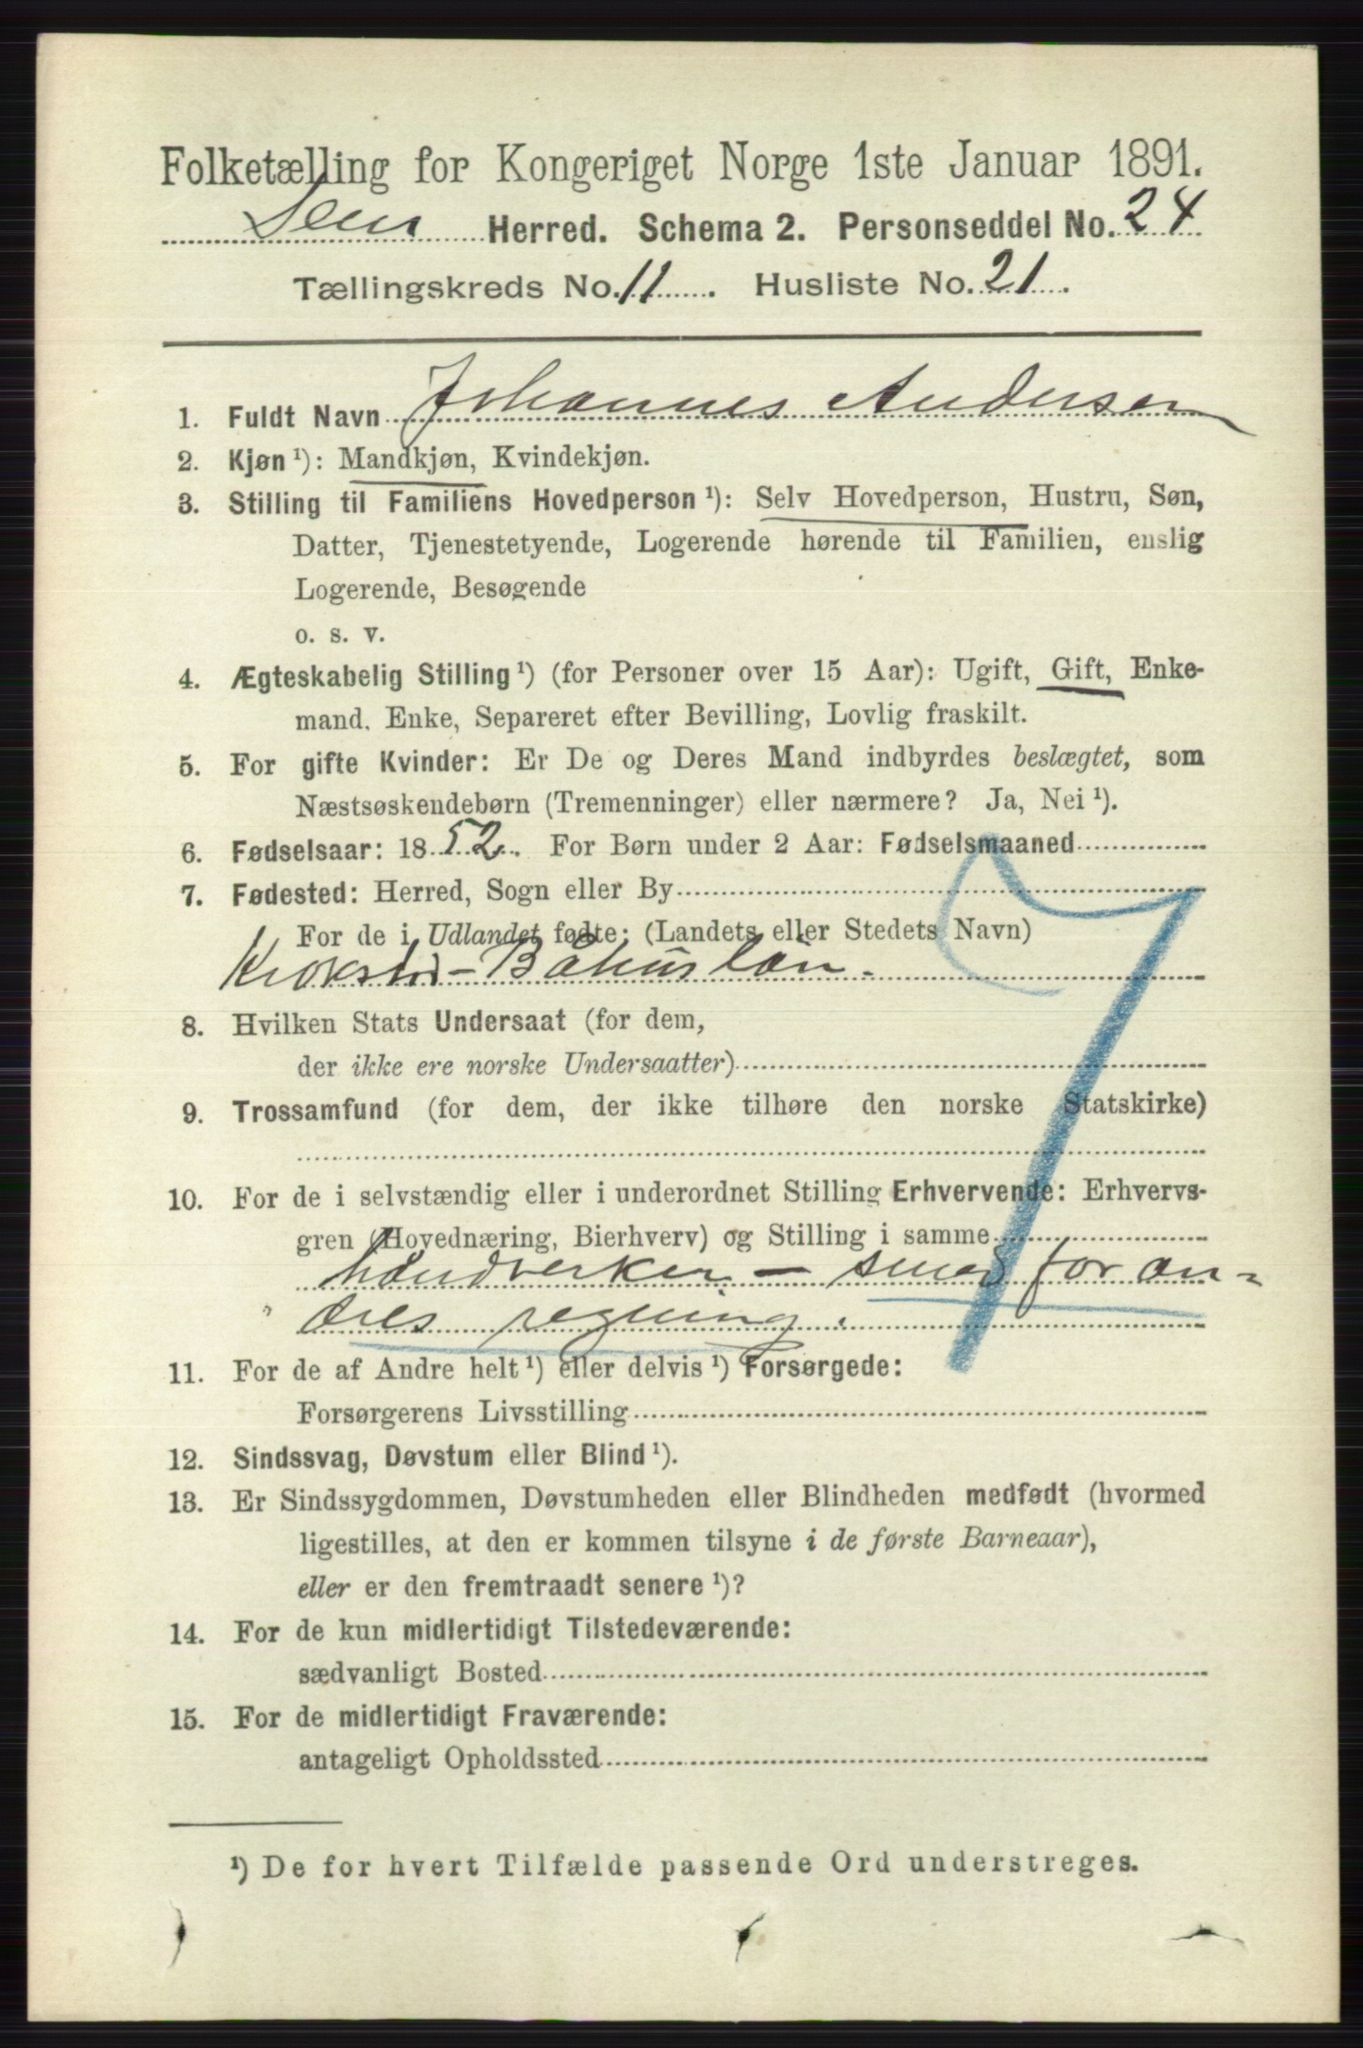 Folketælling for Kongeriget Norge 1ste Januar 1891.
Sem Herred. Schema 2. Personseddel No. 24
Tællingskreds No. 11. Husliste No. 21.
1. Fuldt Navn Johannes Andersen
2. Kjøn ¹): Mandkjøn, Kvindekjøn.
3. Stilling til Familiens Hovedperson ¹): Selv Hovedperson, Hustru, Søn,
Datter, Tjenestetyende, Logerende hørende til Familien, enslig
Logerende, Besøgende
o. s. v.
4. Ægteskabelig Stilling ¹) (for Personer over 15 Aar): Ugift, Gift, Enke-
mand, Enke, Separeret efter Bevilling, Lovlig fraskilt.
5. For gifte Kvinder: Er De og Deres Mand indbyrdes beslægtet, som
Næstsøskendebørn (Tremenninger) eller nærmere? Ja, Nei ¹).
6. Fødselsaar: 1852. For Børn under 2 Aar: Fødselsmaaned
7. Fødested: Herred, Sogn eller By
For de i Udlandet fødte: (Landets eller Stedets Navn)
- Båhuslän.
8. Hvilken Stats Undersaat (for dem,
der ikke ere norske Undersaatter)
9. Trossamfund (for dem, der ikke tilhøre den norske Statskirke)
10. For de i selvstændig eller i underordnet Stilling Erhvervende: Erhvervs-
gren (Hovednæring, Bierhverv) og Stilling i samme
håndverker - smed for an-
dres regning.
11. For de af Andre helt ¹) eller delvis ¹) Forsørgede:
Forsørgerens Livsstilling
12. Sindssvag, Døvstum eller Blind ¹).
13. Er Sindssygdommen, Døvstumheden eller Blindheden medfødt (hvormed
ligestilles, at den er kommen tilsyne i de første Barneaar),
eller er den fremtraadt senere ¹)?
14. For de kun midlertidigt Tilstedeværende:
sædvanligt Bosted
15. For de midlertidigt Fraværende:
antageligt Opholdssted
7
¹) De for hvert Tilfælde passende Ord understreges.